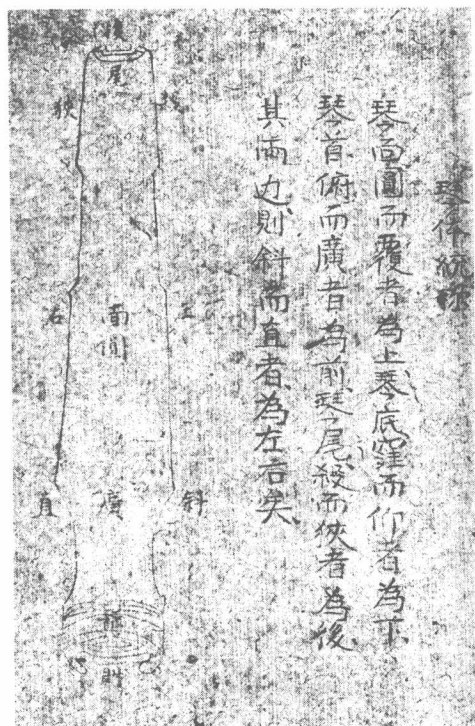 琴体統称
琴面圓而覆者為上琴底窪而仰者為下
琴首俯而廣者為前琴尾殺而狹者為後
其兩边則斜而直者為左右矣
後
尾
狹
右
面圓
左
直
廣
斜
前